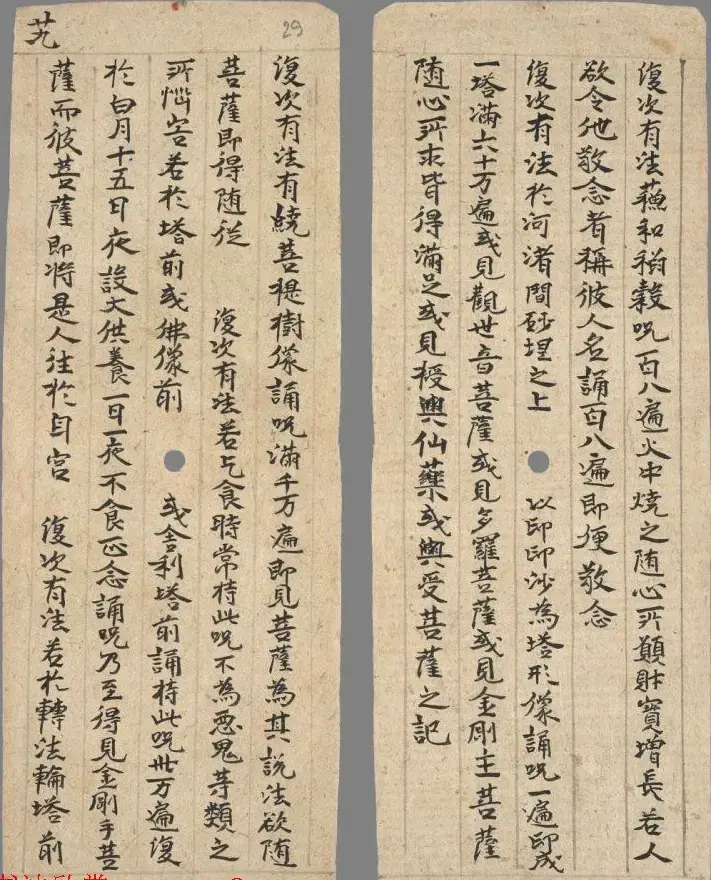 復次有法蘓和稻穀呪一百八遍火中燒之随心所願財寶增長若人
欲令他敬念者稱彼人名誦一百八遍即便敬念
復次有法於河渚間砂堆之上 以印印沙為塔形像誦呪一遍印成
一塔滿六十万遍或見觀世音菩薩或見多羅菩薩或見金剛主菩薩
随心所求皆得滿足或見授與仙藥或與受菩薩之記
廿九
29
復次有法有繞菩提樹像誦呪滿千万遍即見菩薩為其說法欲随
菩薩即得随從 復次有法若乞食時常持此呪不為惡鬼等類之
所惱害若於塔前或佛像前 或舍利塔前誦持此呪卅万遍復
於白月十五日夜設大供養一日一夜不食正念誦呪乃至得見金剛手菩
薩而彼菩薩即將是人往於自宮 復次有法若於轉法輪塔前